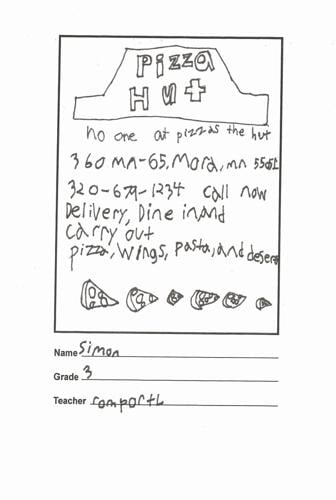 Pizza
Hut
no one at pizzas the hut
360 mn-65, Mora, mn 55051
320-679-1234 call now
Delivery, Dine in and
Carry out
pizza, wings, pasta, and desert
Name Simon
Grade 3
Teacher